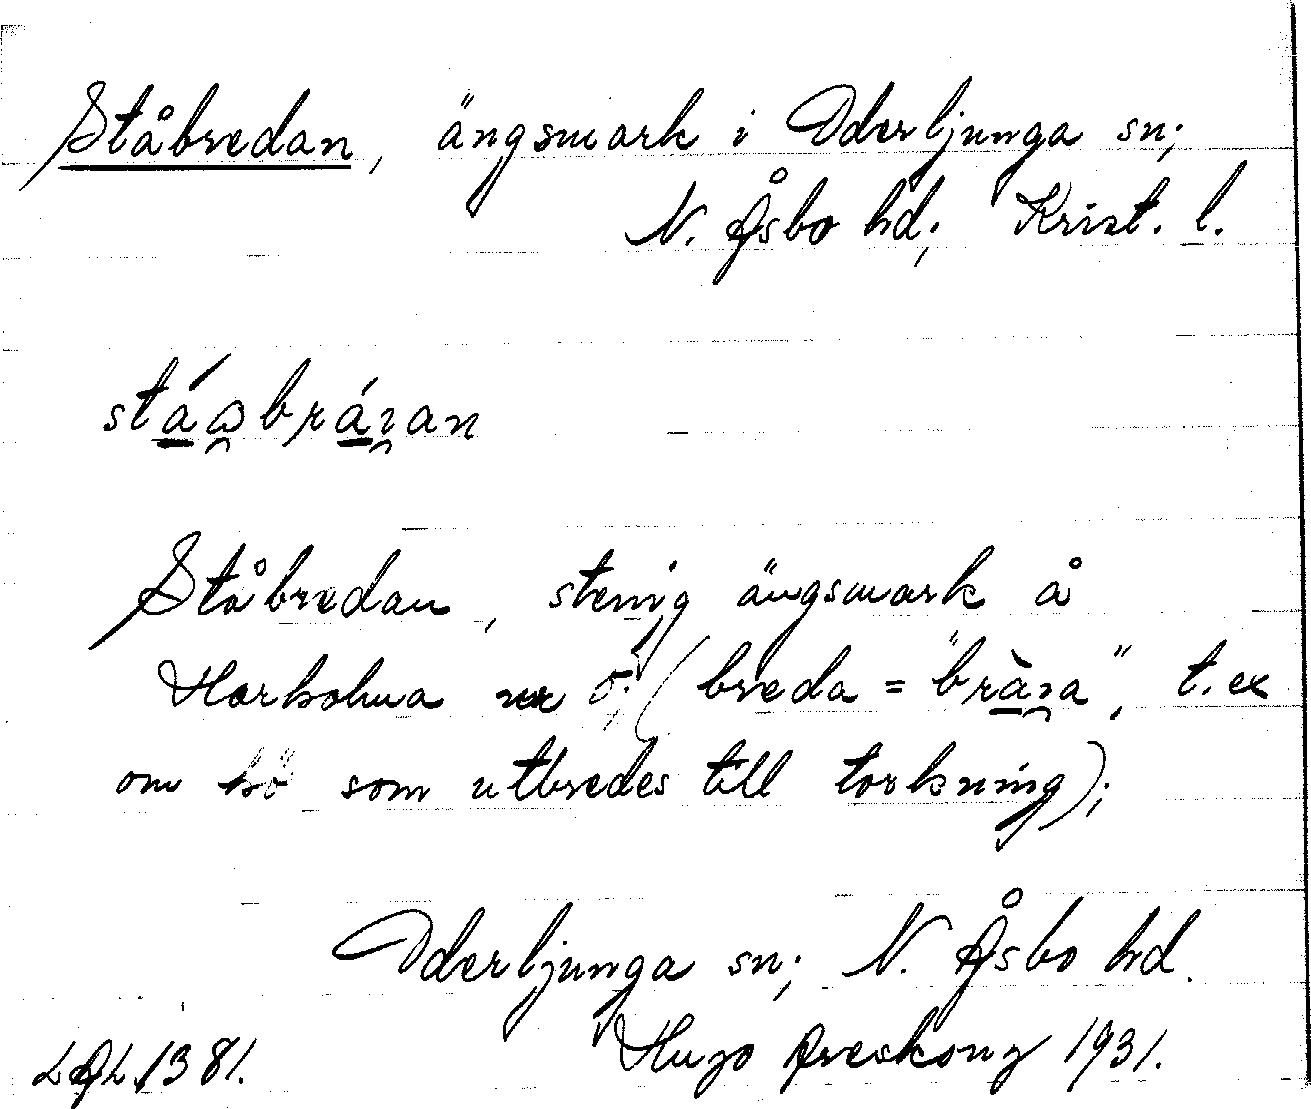 Ståbredan, ängsmark i Oderljunga sn;
N. Åsbo hd; Krist. l.
Ståbredan, stenig ängsmark å
Harholma ö; (breda = "bräa", t.ex
om hö som utbredes till torkning);
Oderljunga sn; N. Åsbo hd.
Hugo Areskoug 1931.
LAL.1381.